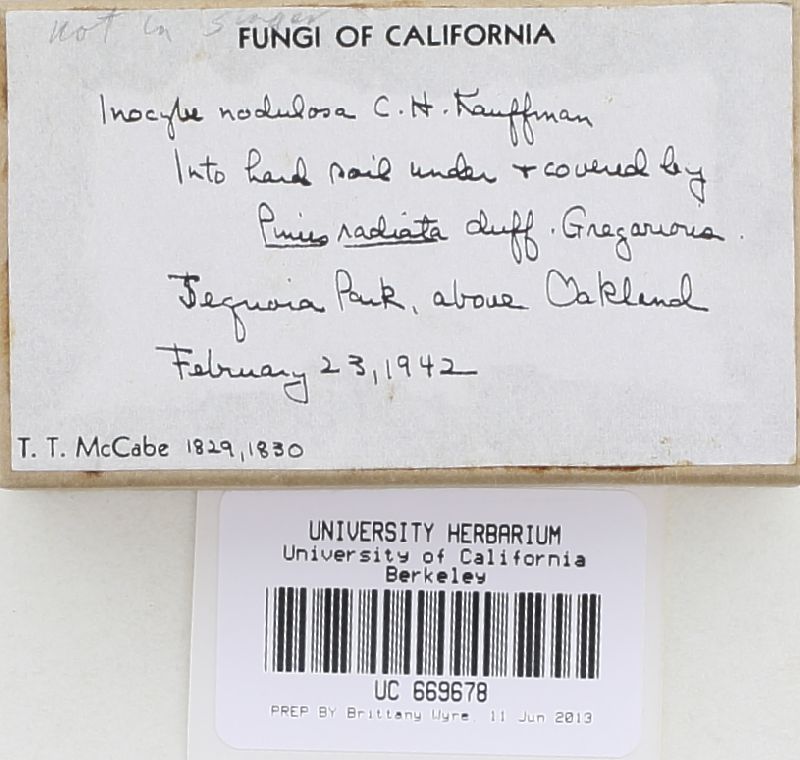 not in Singer
FUNGI OF CALIFORNIA
Inocybe nodulosa C. H. Kauffman
Into hard soil under + covered by
Pinus radiata duff. Gregarious.
Sequoia Park, above Oakland
February 23, 1942
T. T. McCabe 1829, 1830
UNIVERSITY HERBARIUM
University of California
Berkeley
UC 669678
PREP BY Brittany Wyre, 11 Jun 2013